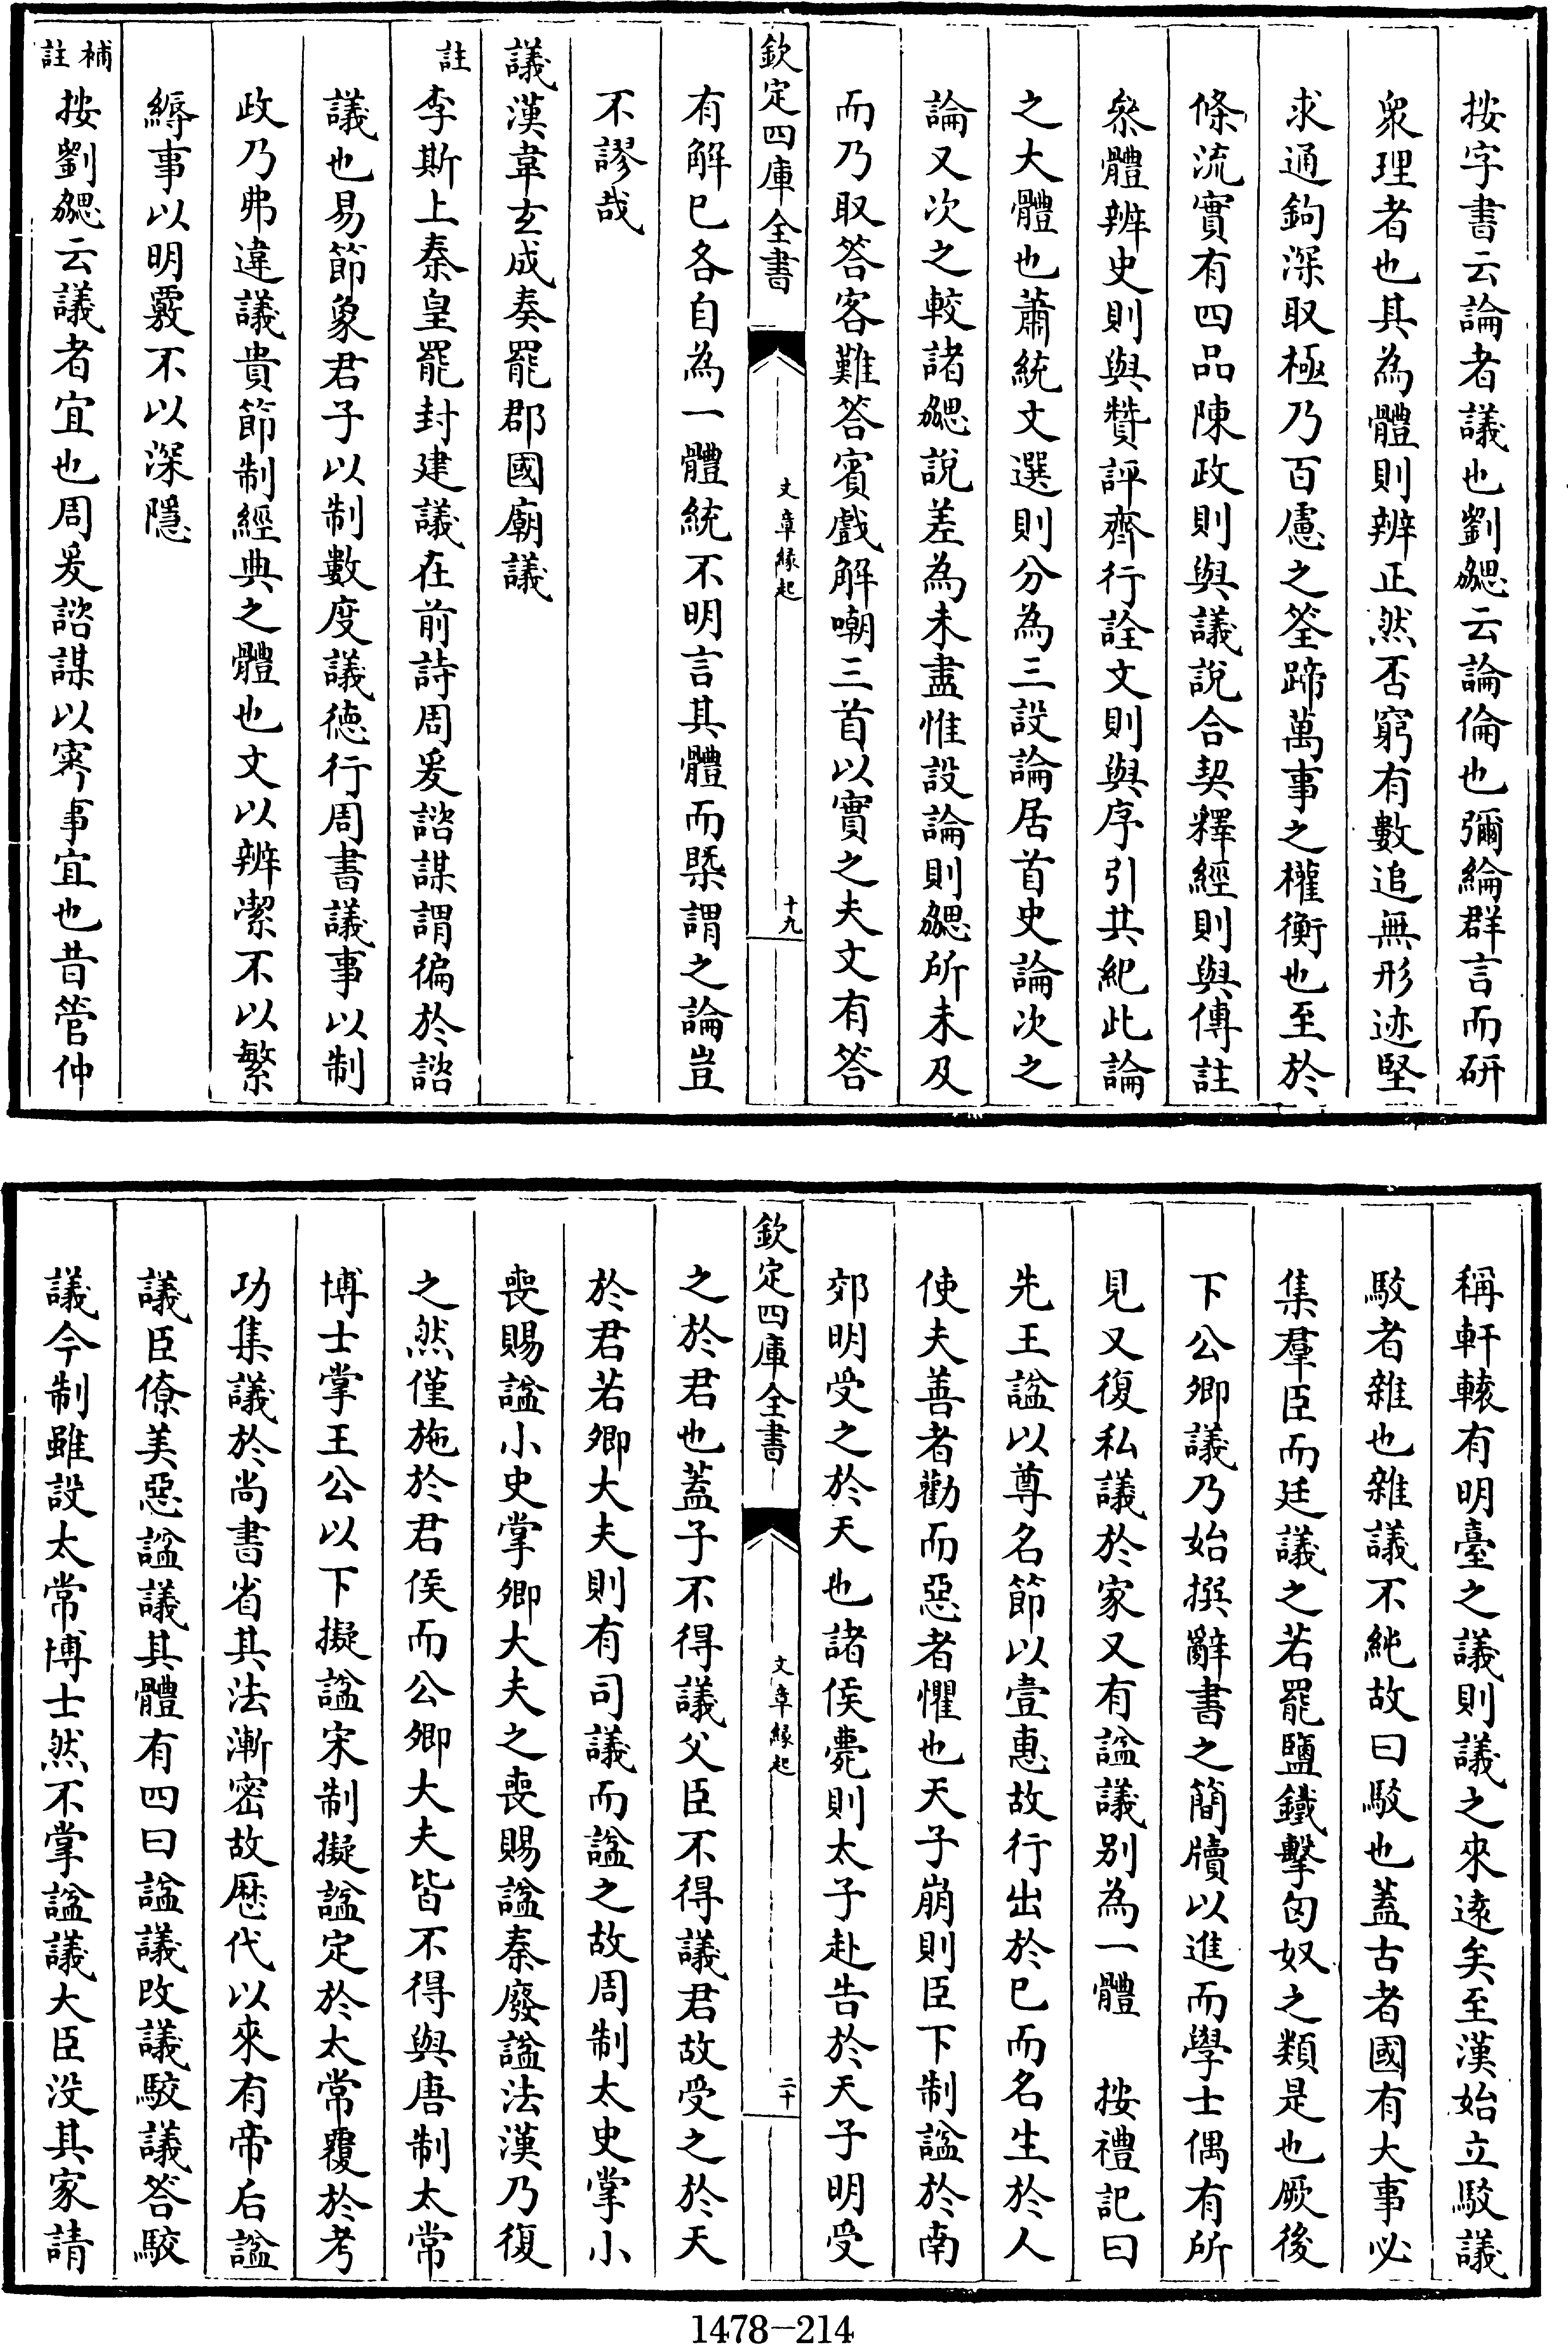 按字書云論者議也劉勰云論倫也彌綸群言而研
衆理者也其為體則辨正然否窮有數追無形迹堅
求通鉤深取極乃百慮之筌蹄萬事之權衡也至於
條流實有四品陳政則與議說合契釋經則與傳註
叅體辨史則與贊評齊行詮文則與序引共紀此論
之大體也蕭統文選則分為三設論居首史論次之
論又次之較諸勰說差為未盡惟設論則勰所未及
而乃取答客難答賓戲解嘲三首以實之夫文有答
欽定四庫全書
文章緣起
十九
有解已各自為一體統不明言其體而槩謂之論豈
不謬哉
議漢韋玄成奏罷郡國廟議
註
李斯上秦皇罷封建議在前詩周爰諮謀謂徧於諮
議也易節象君子以制數度議德行周書議事以制
政乃弗違議貴節制經典之體也文以辨潔不以繁
縟事以明覈不以深隱
補註
按劉勰云議者宜也周爰諮謀以審事宜也昔管仲
稱軒轅有明臺之議則議之來遠矣至漢始立駁議
駁者雜也雜議不純故曰駁也蓋古者國有大事必
集羣臣而廷議之若罷鹽鐵擊匈奴之類是也厥後
下公卿議乃始撰辭書之簡牘以進而學士偶有所
見又復私議於家又有諡議别為一體　按禮記曰
先王諡以尊名節以壹惠故行出於己而名生於人
使夫善者勸而惡者懼也天子崩則臣下制諡於南
郊明受之於天也諸侯薨則太子赴告於天子明受
欽定四庫全書
文章緣起
二十
之於君也蓋子不得議父臣不得議君故受之於天
於君若卿大夫則有司議而諡之故周制太史掌小
喪賜諡小史掌卿大夫之喪賜諡秦廢諡法漢乃復
之然僅施於君侯而公卿大夫皆不得與唐制太常
博士掌王公以下擬諡宋制擬諡定於太常覆於考
功集議於尚書省其法漸密故歷代以來有帝后諡
議臣僚美惡諡議其體有四曰諡議改議駮議答駮
議今制雖設太常博士然不掌諡議大臣没其家請
1478-214